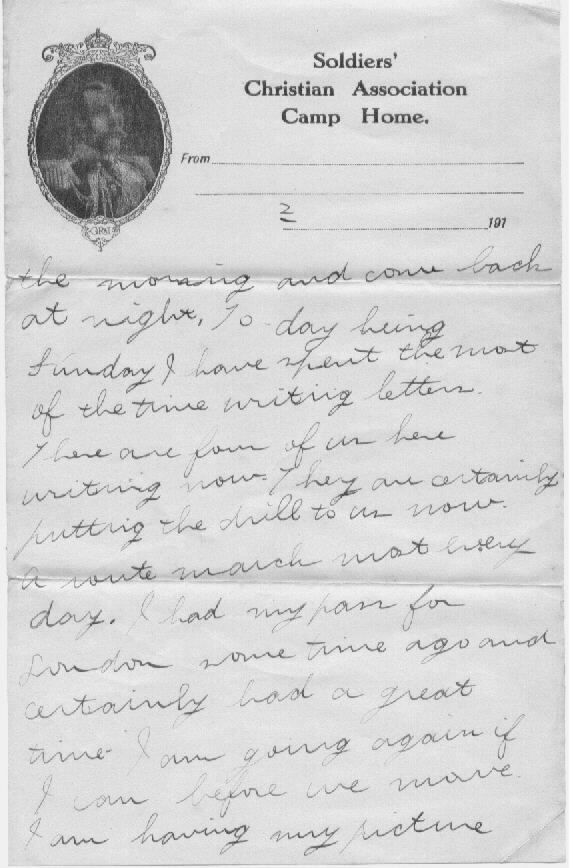 Soldiers'
Christian Association
Camp Home.
From
2
191
the morning and come back
at night. To day being
Sunday I have spent the most
of the time writing letters.
There are four of us here
writing now. They are certainly
putting the drill to us now.
A route march most every
day. I had my pass for
London some time ago and
certainly had a great
time. I am going again if
I can before we move.
I am having my picture